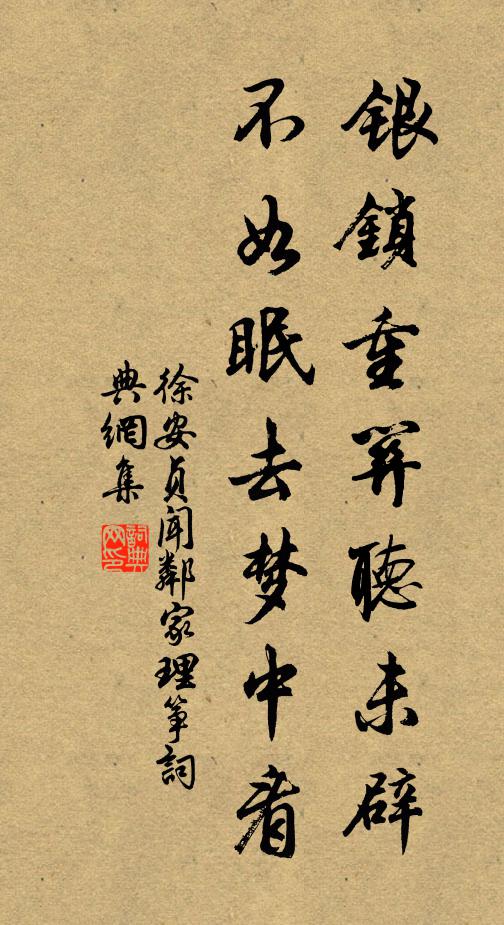 銀鎖重關聽未辟
不如眠去梦中看
徐安貞聞鄰家理箏詞
典網集
詞典
网印